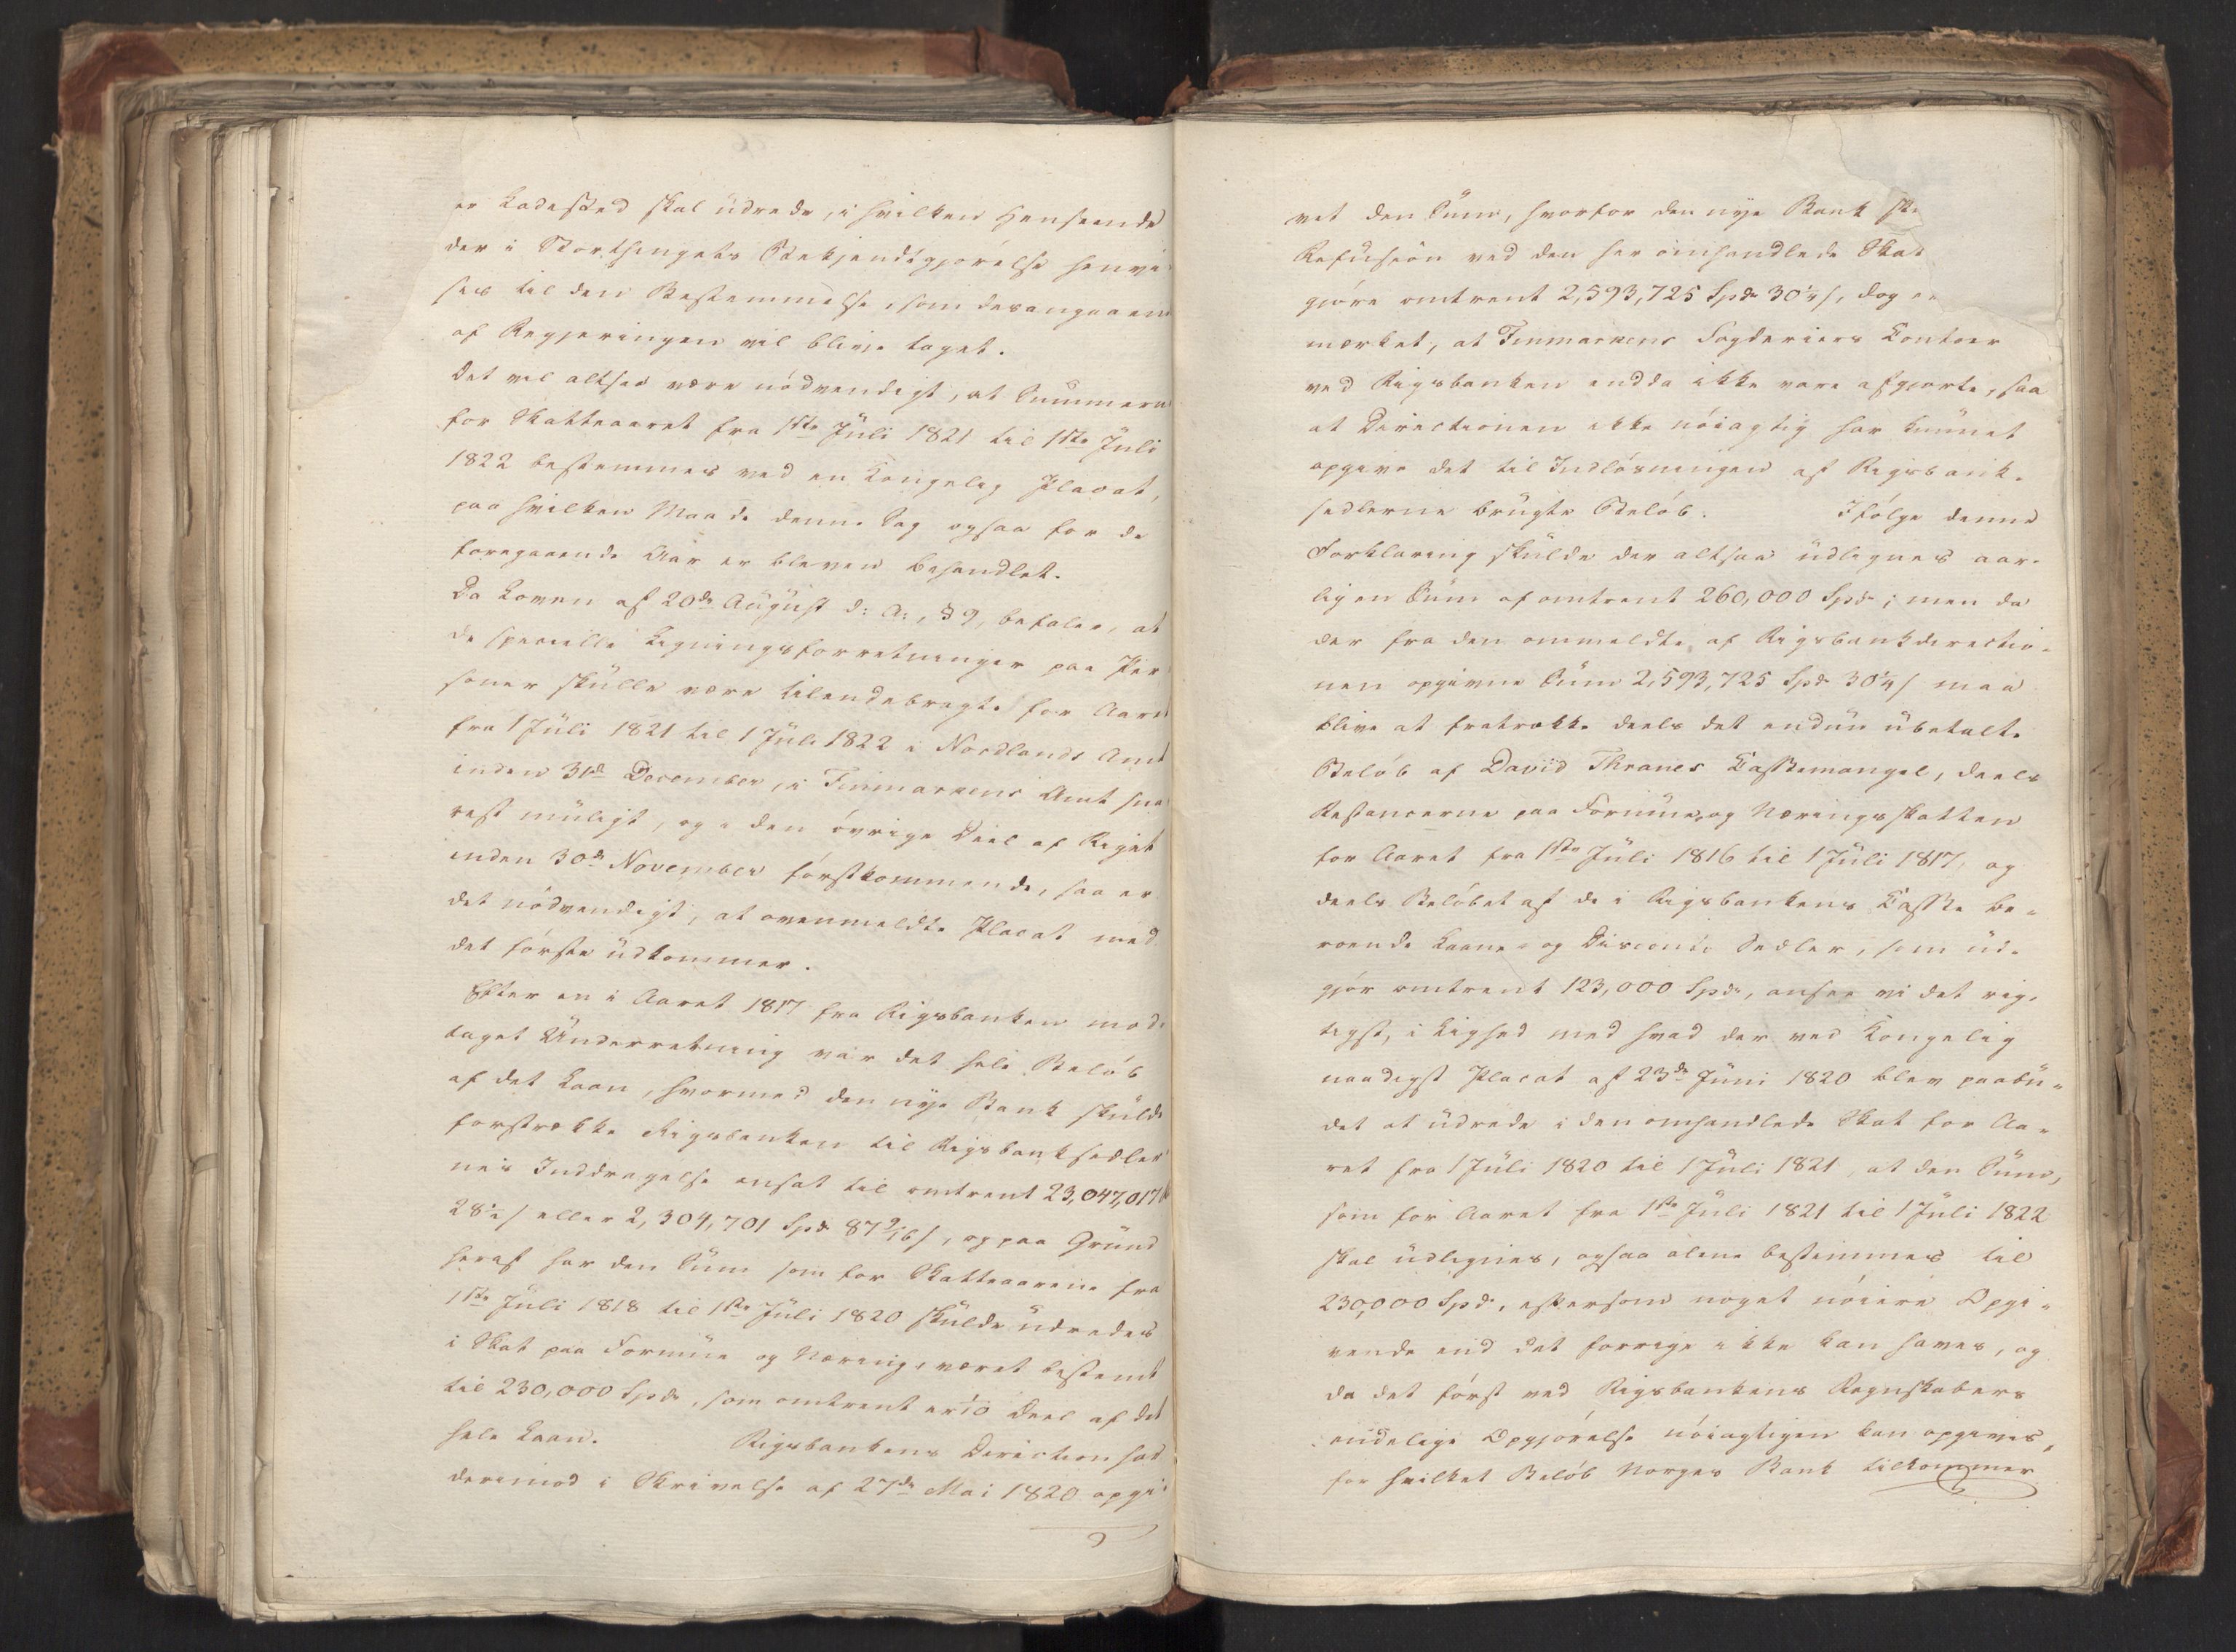 er Ladested skal üdrede, i hvilken Henseende
der i Storthingets Bekjendtgjörelse henvi-
ses til den Bestemmelse, som desangaaend
af Regjeringen vil blive taget.
Det vil altsaa være nödvendigt, at Summerne
for Skatteaaret fra 1ste Jüli 1821 til 1ste Jüli
1822 bestemmes ved en Kongelig Placat,
paa hvilken Maade denne Sag ogsaa for de
foregaaende Aar er bleven behandlet.
Da Loven af 20de Aügüst d: A:, § 9, befaler, at
de specielle Ligningsforretninger paa Per
soner skülle være tilendebragte for Aaret
fra 1 Jüli 1821 til 1 Jüli 1822 i Nordlands Amt
inden 31de December, i Finmarkens Amt sna
rest müligt, og i den övrige Deel af Riget
inden 30de November förstkommende, saa er
det nödvendigt, at ovenmeldte Placat med
det förste üdkommer.
Efter en i Aaret 1817 fra Rigsbanken mod-
taget Ünderretning var det hele Belöb
af det Laan, hvormed den nye Bank skülde
forstrække Rigsbanken til Rigsbanksedler
nes Inddragelse ansat til omtrent 23,047,017
28½ s eller 2,304,701 Spd 87 9/16 s, og paa Gründ
heraf har den Süm som for Skatteaarene fra
1ste Jüli 1818 til 1ste Jüli 1820 skülde üdredes
i Skat paa Formüe og Næring, været bestemt
til 230,000 Spd, som omtrent er 1/10 Deel af det
hele Laan. Rigsbankens Direction har
derimod i Skrivelse af 27de Mai 1820 opgi-
vet den Süm, hvorfor den nye Bank sk
Refüsion ved den her omhandlede Skat
gjöre omtrent 2,593,725 Spd 30¼ s, dog er
mærket, at Finmarkens Fogderiers Contoer
ved Rigsbanken endda ikke vare afgjorte, saa
at Directionen ikke nöiagtig har künnet
opgive det til Indlösningen af Rigsbank-
sedlerne brügte Belöb. Ifölge denne
Forklaring skülde der altsaa üdlignes aar-
lig en Süm af omtrent 260,000 Spd; men da
der fra den ommeldte, af Rigsbankdirectio-
nen opgivne Süm 2,593,725 Spd 30¼ s maa
blive at fratrække deels det endnü übetalte
Belöb af David Thranes Cassemangel, deels
Restancerne paa Formüe og Næringsskatten
for Aaret fra 1ste Jüli 1816 til 1 Jüli 1817, og
deels Belöbet af de i Rigsbankens Casse be-
roende Laane- og Disconto Sedler, som üd-
gjör omtrent 123,000 Spd, ansee vi det rig-
tigst, i Lighed med hvad der ved Kongelig
naadigst Placat af 23de Jüni 1820 blev paabü-
det at üdrede i den omhandlede Skat for Aa-
ret fra 1 Jüli 1820 til 1 Jüli 1821, at den Süm,
som for Aaret fra 1ste Jüli 1821 til 1 Jüli 1822
skal üdlignes, ogsaa alene bestemmes til
230,000 Spd, eftersom noget nöiere Opgi-
vende end det forrige ikke kan haves, og
da det först ved Rigsbankens Regnskabers
endelige Opgjörelse nöiagtigen kan opgives,
for hvilket Belöb Norges Bank tilkommer